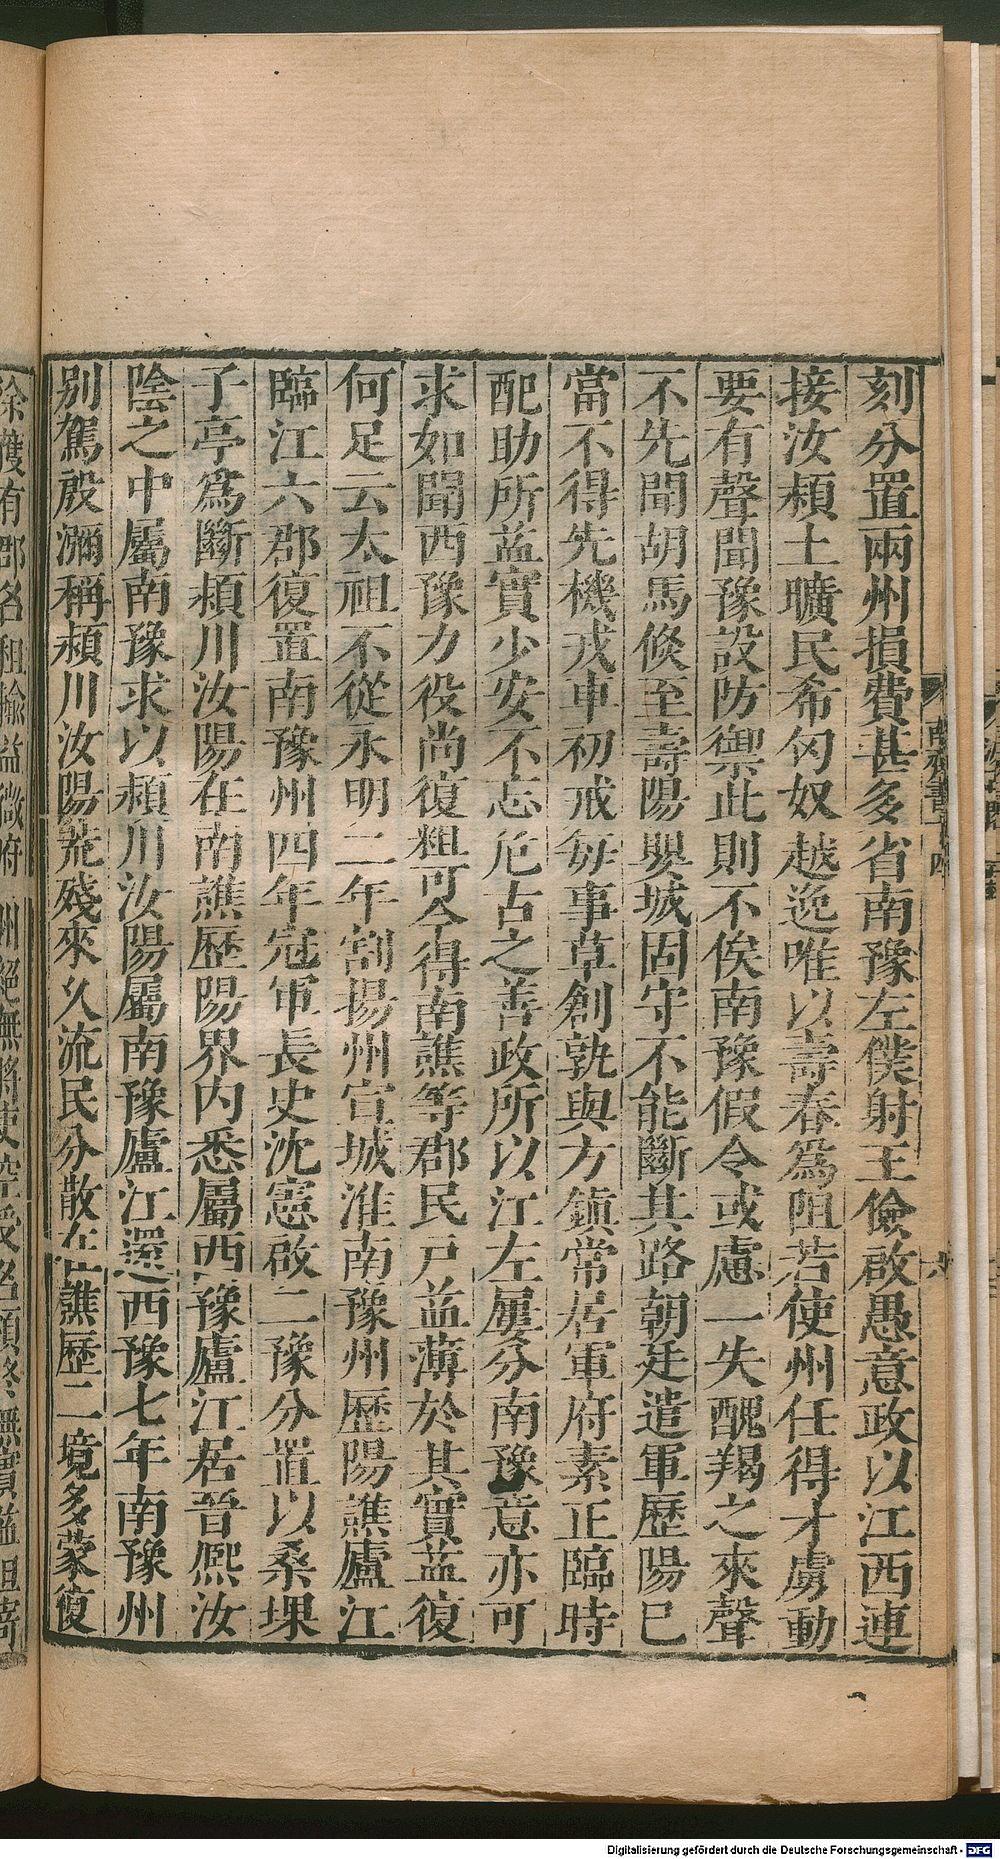 刻分置兩州損費甚多省南豫左僕射王儉啟愚意政以江西連
接汝潁土曠民希匈奴越逸唯以壽春爲阻若使州任得才虜動
要有聲聞豫設防禦此則不俟南豫假令或慮一失醜羯之來聲
不先聞胡馬倏至壽陽嬰城固守不能斷其路朝廷遣軍歷陽已
當不得先機戎車初戒每事草創孰與方鎮常居軍府素正臨時
配助所益實少安不忘危古之善政所以江左屢分南豫意亦可
求如聞西豫力役尚復粗可今得南譙等郡民戶益薄於其實益復
何足云太祖不從永明二年割揚州宣城淮南豫州歷陽譙廬江
臨江六郡復置南豫州四年冠軍長史沈憲啟二豫分置以桑堁
子亭爲斷潁川汝陽在南譙歷陽界內悉屬西豫廬江居晉熙汝
陰之中屬南豫求以潁川汝陽屬南豫廬江還西豫七年南豫州
別駕殷瀰稱潁川汝陽荒殘來久流民分散在譙歷二境多蒙復
南齊書十四
六
除獲有郡名租輸益微府州絕無將吏空受名領終無實益但寄
Digitalisierung gefördert durch die Deutsche Forschungsgemeinschaft - DFG